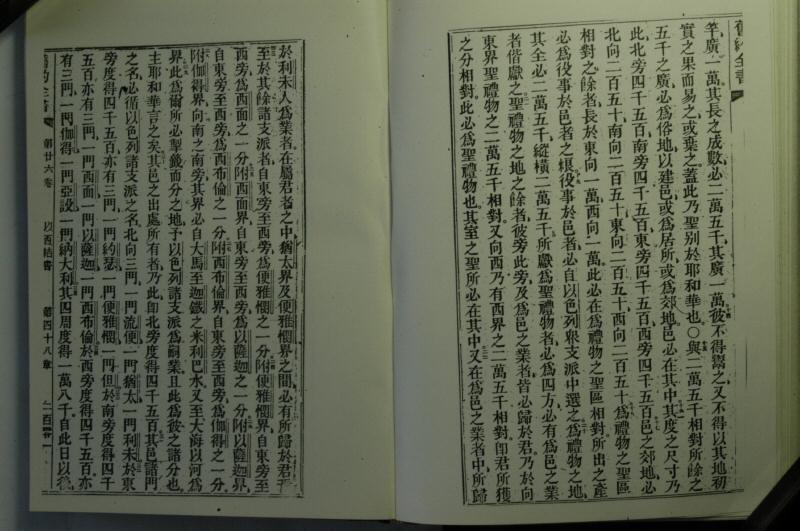 舊約全書
竿廣一萬其長之成數必二萬五千其廣一萬彼不得鬻之又不得以其地初
實之果而易之或棄之蓋此乃聖別於耶和華也〇與二萬五千相對所餘之
五千之廣必爲俗地以建邑或爲居所或爲郊地邑必在其中其度之尺寸乃
此北旁四千五百南旁四千五百東旁四千五百西旁四千五百邑之郊地必
北向二百五十南向二百五十東向二百五十西向二百五十爲禮物之聖區
相對之餘者長於東向一萬西向一萬此必在爲禮物之聖區相對所出之產
必爲役事於邑者之糧役事於邑者必自以色列衆支派中選之爲禮物之地
其全必二萬五千縱橫二萬五千所獻爲聖禮物者必爲四方必有爲邑之業
者偕獻之聖禮物之地之餘者彼旁此旁及爲邑之業者皆必歸於君乃於向
東界聖禮物之二萬五千相對又向西乃有西界之二萬五千相對卽君所獲
之分相對此必爲聖禮物也其室之聖所必在其中又在爲邑之業者中所歸
於利未人爲業者在屬君者之中猶太界及便雅憫界之間必有所歸於君
至於其餘諸支派者自東旁至西旁爲便雅憫之一分附便雅憫界自東旁至
西旁爲西面之一分附西面界自東旁至西旁爲以薩迦之一分附以薩迦界
自東旁至西旁爲西布倫之一分附西布倫界自東旁至西旁爲伽得之一分
附伽得界向南之南旁其界必自大馬至迦鐵之米利巴水又至大海以河爲
界此爲爾所必掣籤而分之地予以色列諸支派爲嗣業且此爲彼之諸分也
主耶和華言之矣其邑之出處所有者乃此卽北旁度得四千五百其邑諸門
之名必循以色列諸支派之名北向三門一門流便一門猶太一門利未於東
旁度得四千五百亦有三門一門約瑟一門便雅憫一門但於南旁度得四千
五百亦有三門一門西面一門以薩迦一門西布倫於西旁度得四千五百亦
有三門一門伽得一門亞設一門納大利其四周度得一萬八千自此日以後
舊約全書 第廿六卷 以西結書 第四十八章 一百零一